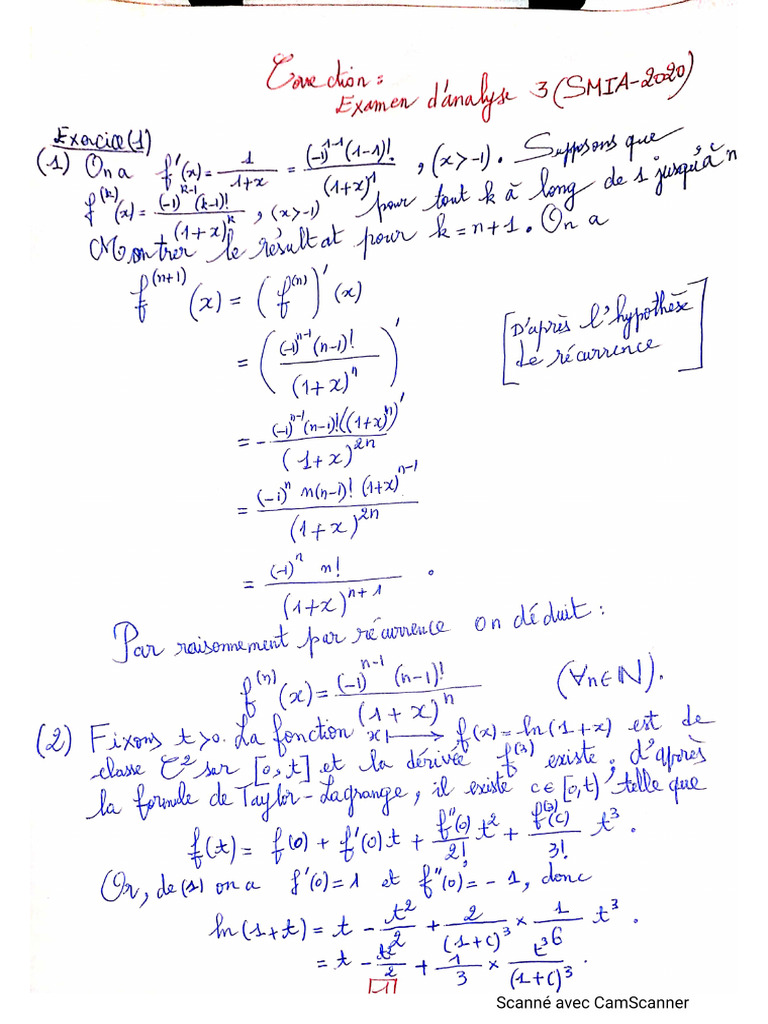 Correction :
Examen d'analyse 3 (SMIA-2020)
Exercice (1)
(1) On a f'(x) = 1/(1+x) = (-1)^{1-1} (1-1)!/(1+x)^1 , (x>-1). Supposons que
f^{(k)}(x) = (-1)^{k-1} (k-1)!/(1+x)^k , (x>-1) pour tout k à long de 1 jusqu'à n
Montrer le résultat pour k = n+1. On a
f^{(n+1)}(x) = (f^{(n)})'(x)
= ((-1)^{n-1} (n-1)!/(1+x)^n)' [D'après l'hypothèse
de récurrence]
= - (-1)^{n-1} (n-1)! ((1+x)^n)'/(1+x)^{2n}
= (-1)^n n(n-1)! (1+x)^{n-1}/(1+x)^{2n}
= (-1)^n n!/(1+x)^{n+1} .
Par raisonnement par récurrence on déduit :
f^{(n)}(x) = (-1)^{n-1} (n-1)!/(1+x)^n (∀n∈ℕ).
(2) Fixons t>0. La fonction x ↦ f(x) = ln(1+x) est de
classe C² sur [0,t] et la dérivée f^{(3)} existe, d'après
la formule de Taylor-Lagrange, il existe c∈[0,t) telle que
f(t) = f(0) + f'(0)t + f''(0)/2! t² + f^{(3)}(c)/3! t³ .
Or, de (1) on a f'(0) = 1 et f''(0) = -1, donc
ln(1+t) = t - t²/2 + 2/(1+c)³ × 1/6 t³ .
= t - t²/2 + 1/3 × t³/(1+c)³ .
1
Scanné avec CamScanner